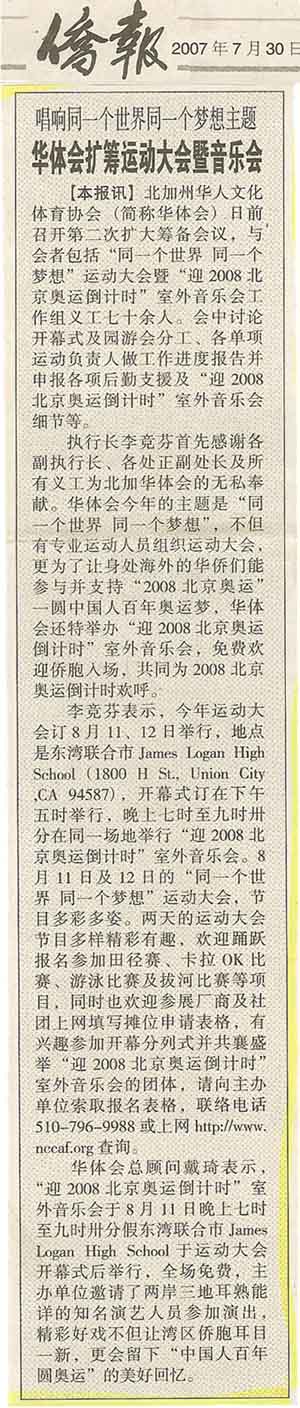 僑報 2007年7月30日
唱响同一个世界同一个梦想主题
华体会扩筹运动大会暨音乐会
【本报讯】北加州华人文化
体育协会（简称华体会）日前
召开第二次扩大筹备会议，与
会者包括“同一个世界 同一个
梦想”运动大会暨“迎2008北
京奥运倒计时”室外音乐会工
作组义工七十余人。会中讨论
开幕式及园游会分工、各单项
运动负责人做工作进度报告并
申报各项后勤支援及“迎2008
北京奥运倒计时”室外音乐会
细节等。
执行长李竞芬首先感谢各
副执行长、各处正副处长及所
有义工为北加华体会的无私奉
献。华体会今年的主题是“同
一个世界 同一个梦想”，不但
有专业运动人员组织运动大会，
更为了让身处海外的华侨们能
参与并支持“2008北京奥运”
一圆中国人百年奥运梦，华体
会还特举办“迎2008北京奥运
倒计时”室外音乐会，免费欢
迎侨胞入场，共同为2008北京
奥运倒计时欢呼。
李竞芬表示，今年运动大
会订8月11、12日举行，地点
是东湾联合市James Logan High
School (1800 H St., Union City
,CA 94587)，开幕式订在下午
五时举行，晚上七时至九时卅
分在同一场地举行“迎2008北
京奥运倒计时”室外音乐会。8
月11日及12日的“同一个世
界 同一个梦想”运动大会，节
目多彩多姿。两天的运动大会
节目多样精彩有趣，欢迎踊跃
报名参加田径赛、卡拉OK比
赛、游泳比赛及拔河比赛等项
目，同时也欢迎参展厂商及社
团上网填写摊位申请表格，有
兴趣参加开幕分列式并共襄盛
举“迎2008北京奥运倒计时”
室外音乐会的团体，请向主办
单位索取报名表格，联络电话
510-796-9988或上网http://www.
nccaf.org查询。
华体会总顾问戴琦表示，
“迎2008北京奥运倒计时”室
外音乐会于8月11日晚上七时
至九时卅分假东湾联合市James
Logan High School于运动大会
开幕式后举行，全场免费，主
办单位邀请了两岸三地耳熟能
详的知名演艺人员参加演出，
精彩好戏不但让湾区侨胞耳目
一新，更会留下“中国人百年
圆奥运”的美好回忆。